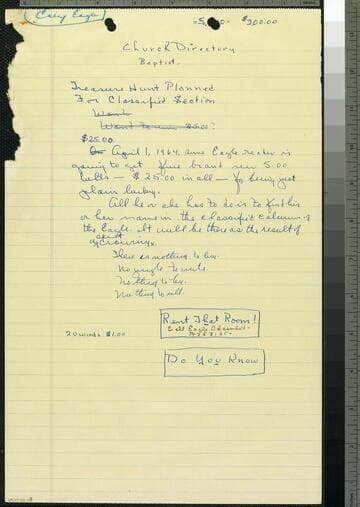 5,000 $200.00
Church Directory
Baptist.
Treasure Hunt Planned
For Classified Section
Want
Want to win $5.00?
$25.00
On April 1, 1964, one Eagle reader is
going to get five brand new 5.00
bills — $25.00 in all — for being just
plain lucky.
All he or she has to do is to find his
or her name in the classified columns of
the Eagle. It will be there as the result of
a drawing.
There is nothing to buy.
No jingle to write.
Nothing to buy.
Nothing to sell.
Rent That Room!
Call Eagle Classified
20 words $1.00
Do You Know